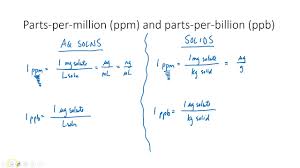 Parts-per-million (ppm) and parts-per-billion (ppb)
AQ SOLNS
1 ppm = 1 mg solute / L soln = mg / L = µg / mL
1 ppb = 1 µg solute / L soln
SOLIDS
1 ppm = 1 mg solute / kg solid = µg / g
1 ppb = 1 µg solute / kg solid